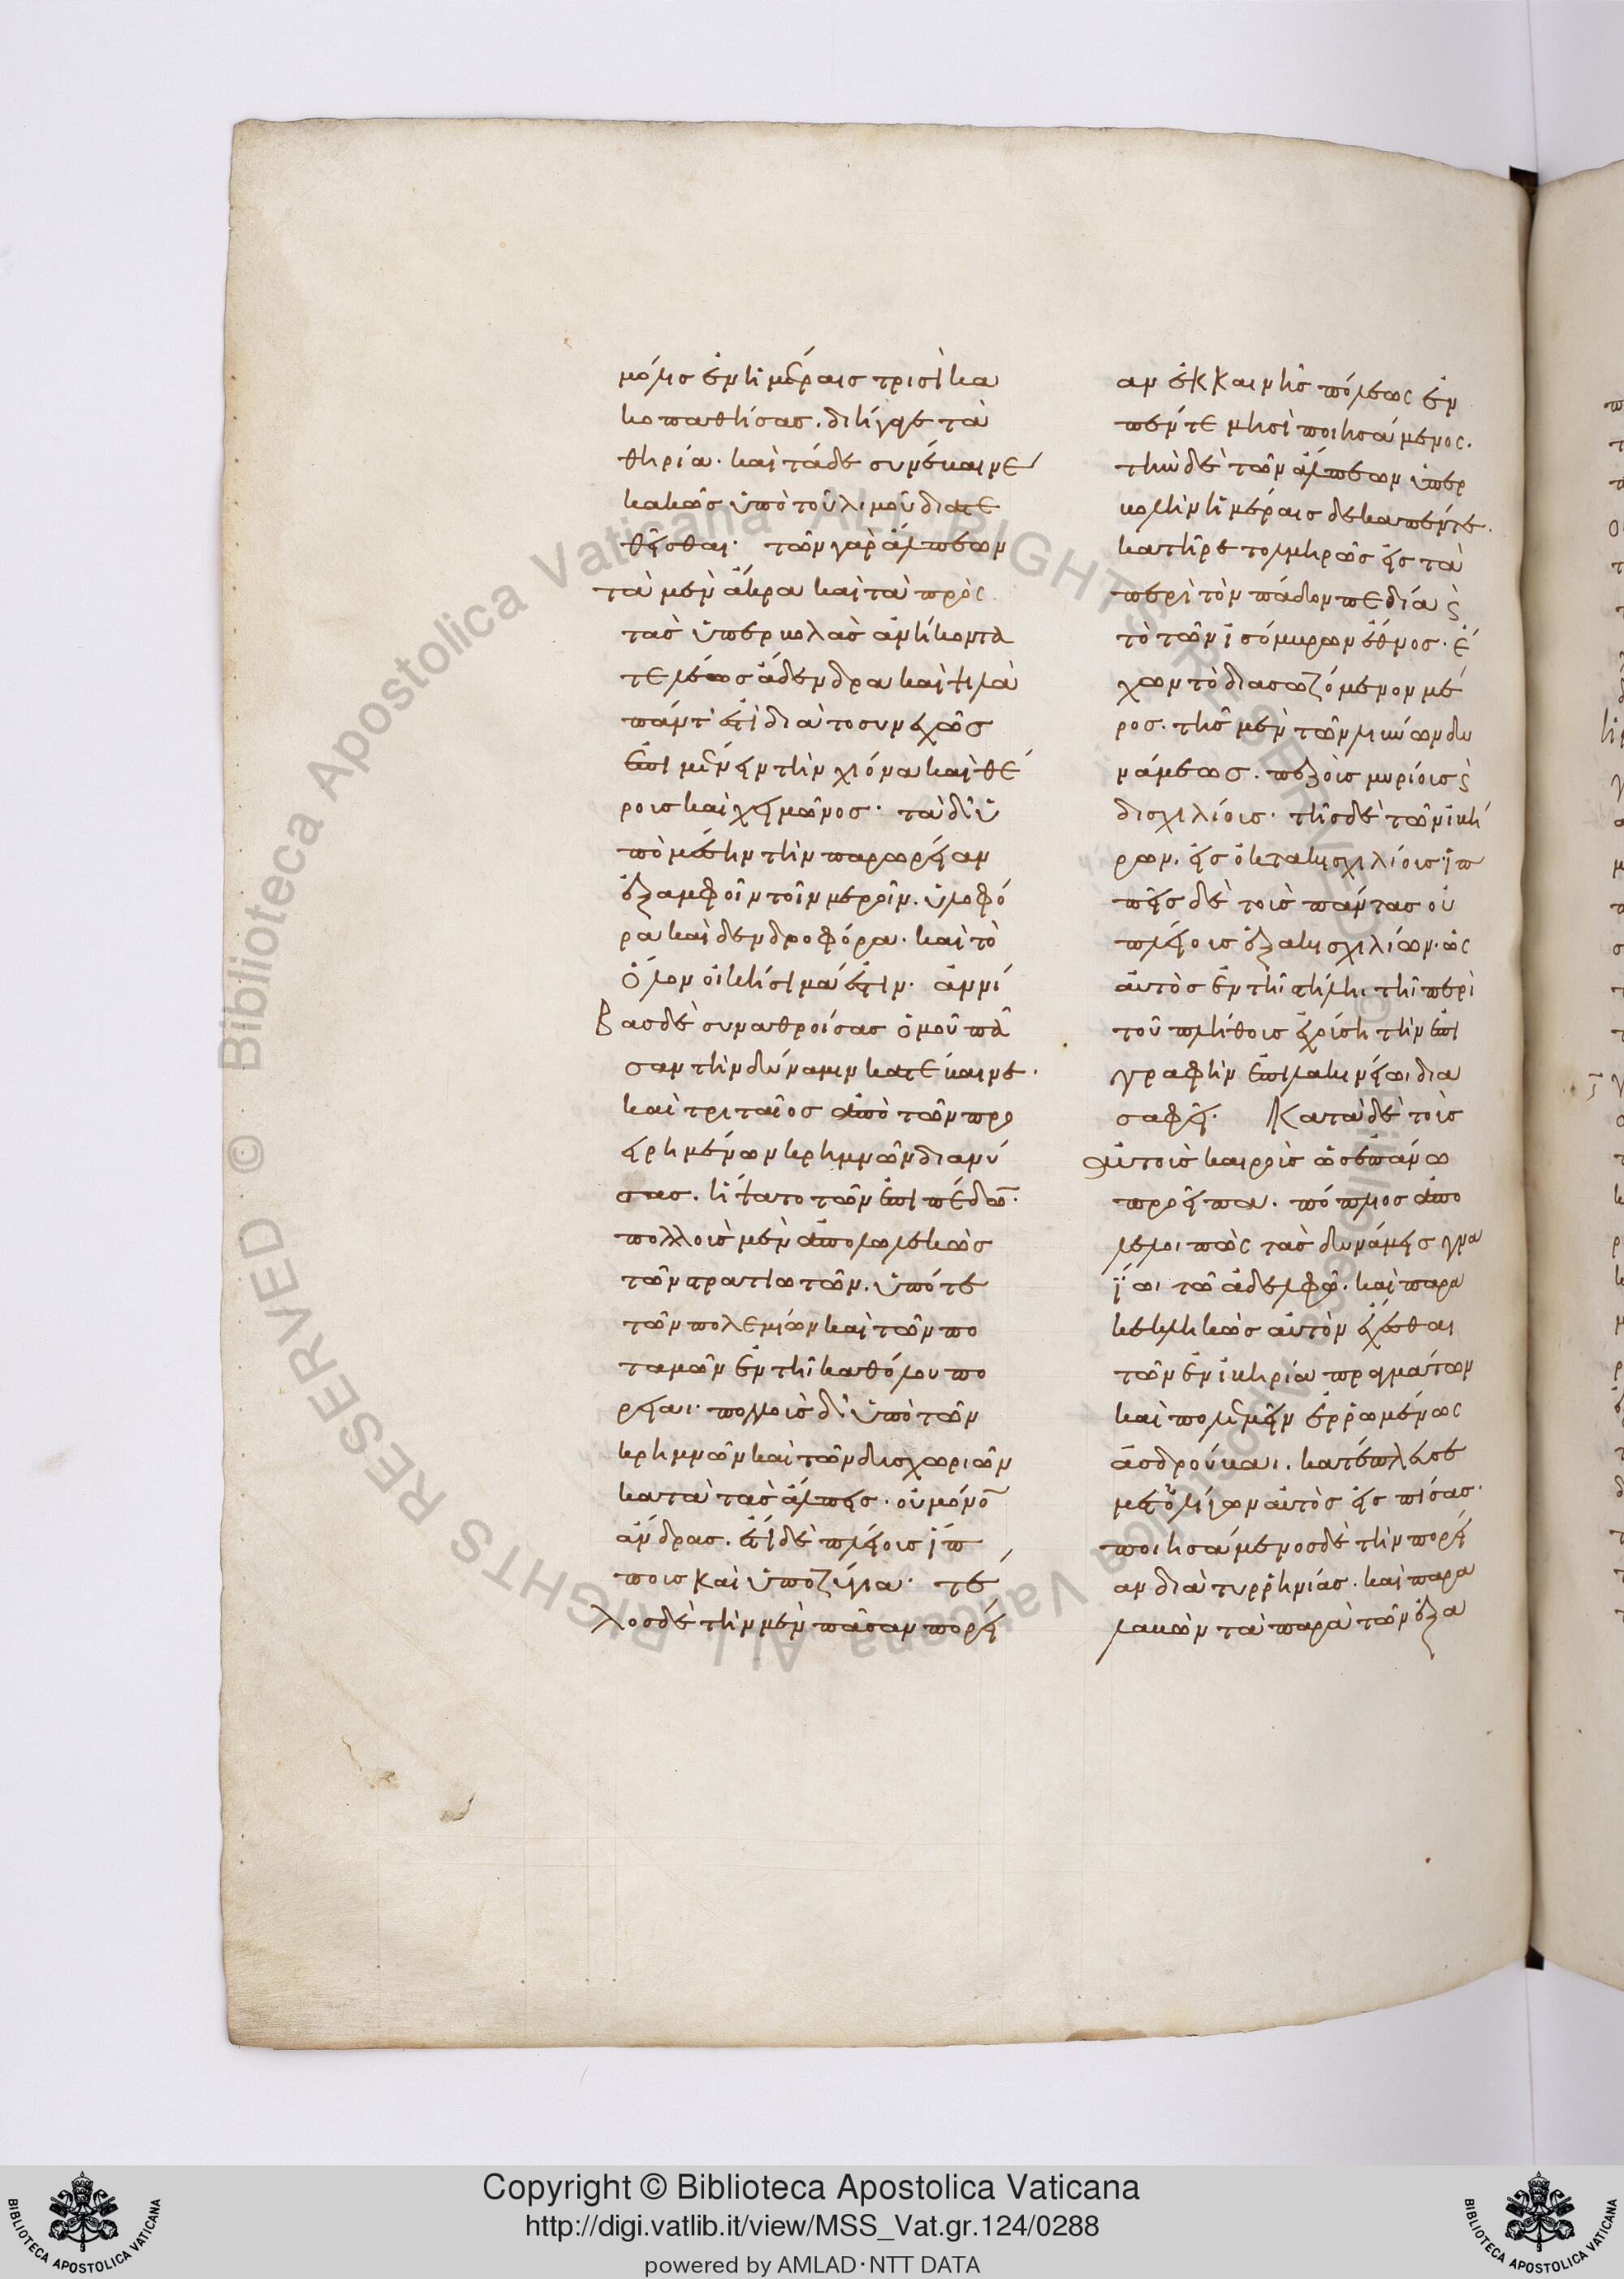 μόλις ἐν ἡμέραις τρισὶ κα
κοπαθήσας. διήγαγε τὰ
θηρία. καὶ τάδε συνέβαινε
κακῶς ὑπὸ τοῦ λιμοῦ διατε
θεῖσθαι. τῶν γὰρ ἄλπεων
τὰ μὲν ἄκρα καὶ τὰ πρὸς
τὰς ὑπερβολὰς ἀνήκοντα
τελέως ἄδενδρα καὶ ψιλὰ
πάντ' ἐστὶ διὰ τὸ συνεχῶς
ἐπιμένειν τὴν χιόνα καὶ θέ
ρους καὶ χειμῶνος. τὰ δ' ὑ
πὸ μέσην τὴν παρώρειαν
ἐξ ἀμφοῖν τοῖν μεροῖν. ὑλοφό
ρα καὶ δενδροφόρα. καὶ τὸ
ὅλον οἰκήσιμά ἐστιν. ἀννί
βας δὲ συναθροίσας ὁμοῦ πᾶ
σαν τὴν δύναμιν κατέβαινε.
καὶ τριταῖος ἀπὸ τῶν προ
ειρημένων κρημνῶν διανύ
σας. ἥψατο τῶν ἐπιπέδων.
πολλοὺς μὲν ἀπολωλεκὼς
τῶν στρατιωτῶν. ὑπό τε
τῶν πολεμίων καὶ τῶν πο
ταμῶν ἐν τῇ καθόλου πο
ρείαι. πολλοὺς δ' ὑπὸ τῶν
κρημνῶν καὶ τῶν δυσχωριῶν
κατὰ τὰς ἄλπεις. οὐ μόνον
ἄνδρας. ἔτι δὲ πλείους ἵπ
πους καὶ ὑποζύγια. τέ
λος δὲ τὴν μὲν πᾶσαν πορεί
αν ἐκ καινῆς πόλεως ἐν
πέντε μησὶ ποιησάμενος.
τὴν δὲ τῶν ἄλπεων ὑπερ
βολὴν ἡμέραις δεκαπέντε.
κατῆρε τολμηρῶς εἰς τὰ
περὶ τὸν πάδον πεδία καὶ
τὸ τῶν ἰσόμβρων ἔθνος. ἔ
χων τὸ διασωζόμενον μέ
ρος. τῆς μὲν τῶν λιβύων δυ
νάμεως. πεζοὺς μυρίους καὶ
δισχιλίους. τῆς δὲ τῶν ἰβή
ρων. εἰς ὀκτακισχιλίους. ἵπ
πεις δὲ τοὺς πάντας οὐ
πλείους ἑξακισχιλίων. ὡς
αὐτὸς ἐν τῇ στήληι τῇ περὶ
τοῦ πλήθους ἐχούσῃ τὴν ἐπι
γραφὴν ἐπὶ λακινείωι δια
σαφεῖ. Κατὰ δὲ τοὺς
αὐτοὺς καιροὺς ὡς ἐπάνω
προεῖπα. πόπλιος ἀπο
λελοιπὼς τὰς δυνάμεις γνα
ΐωι τῶ ἀδελφῶ. καὶ παρα
κεκληκὼς αὐτὸν ἔχεσθαι
τῶν ἐν ἰβηρία πραγμάτων
καὶ πολεμεῖν ἐρρωμένως
ἀσδρούβαι. κατέπλευσε
μετ' ὀλίγων αὐτὸς εἰς πίσας.
ποιησάμενος δὲ τὴν πορεί
αν διὰ τυρρηνίας. καὶ παρα
λαβὼν τὰ παρὰ τῶν ἑξα
Copyright © Biblioteca Apostolica Vaticana
http://digi.vatlib.it/view/MSS_Vat.gr.124/0288
powered by AMLAD·NTT DATA